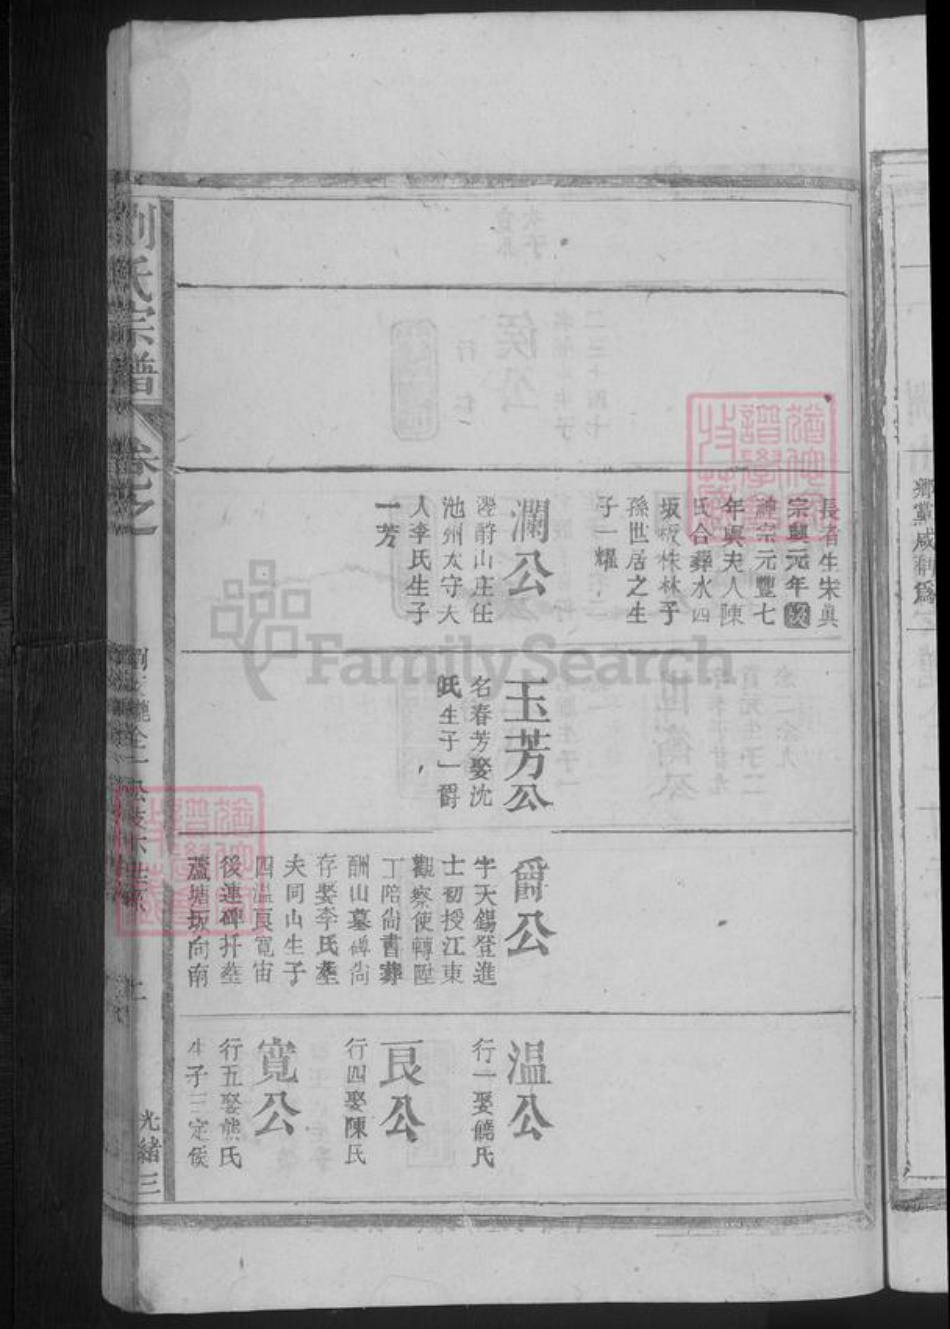 長者生宋眞
宗興元年歿
神宗元豐七
年與夫人陳
氏合葬水四
坂板株林子
孫世居之生
子一耀
瀾公
澄爵山庄任
池州太守夫
人李氏生子
一芳
玉芳公
名春芳娶沈
氏生子一爵
爵公
字天錫登進
士初授江東
觀察使轉陞
丁陪尙書葬
酬山墓碑尙
存娶李氏葬
夫同山生子
四溫艮寬宙
後連碑扦葬
蘆塘坂向南
温公
行一娶饒氏
艮公
行四娶陳氏
寬公
行五娶熊氏
生子三定侯
劉氏宗譜
卷之
光緒三
鄉黨咸
FamilySearch